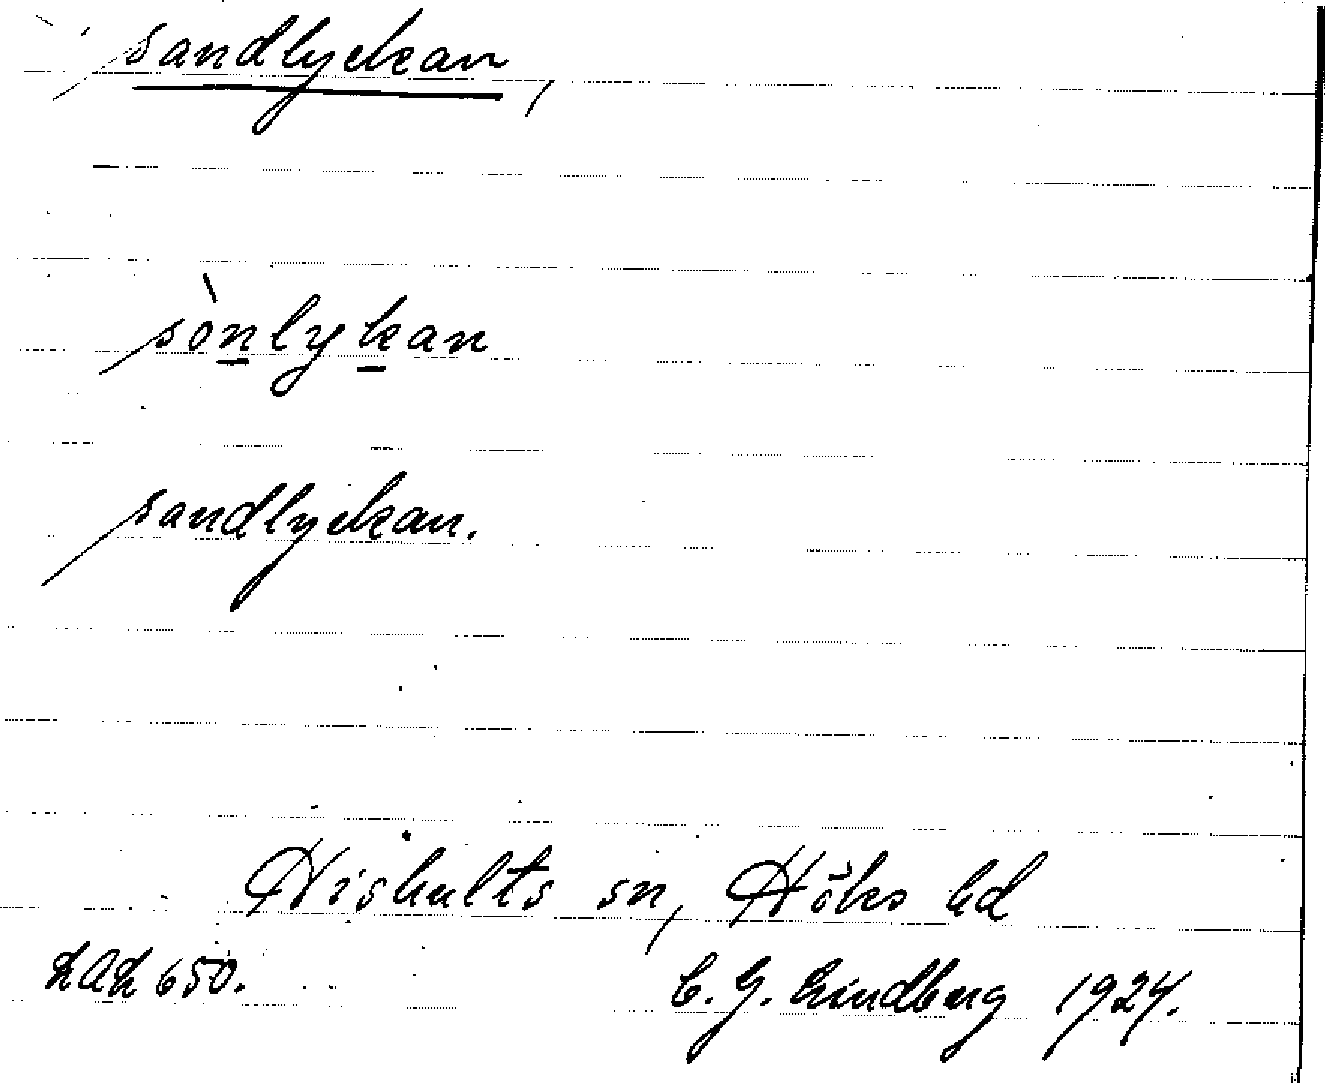 sandlyckan,
sònlykan
sandlyckan.
Hishults sn, Höks hd
LAL 650.
C. G. Lindberg 1924.